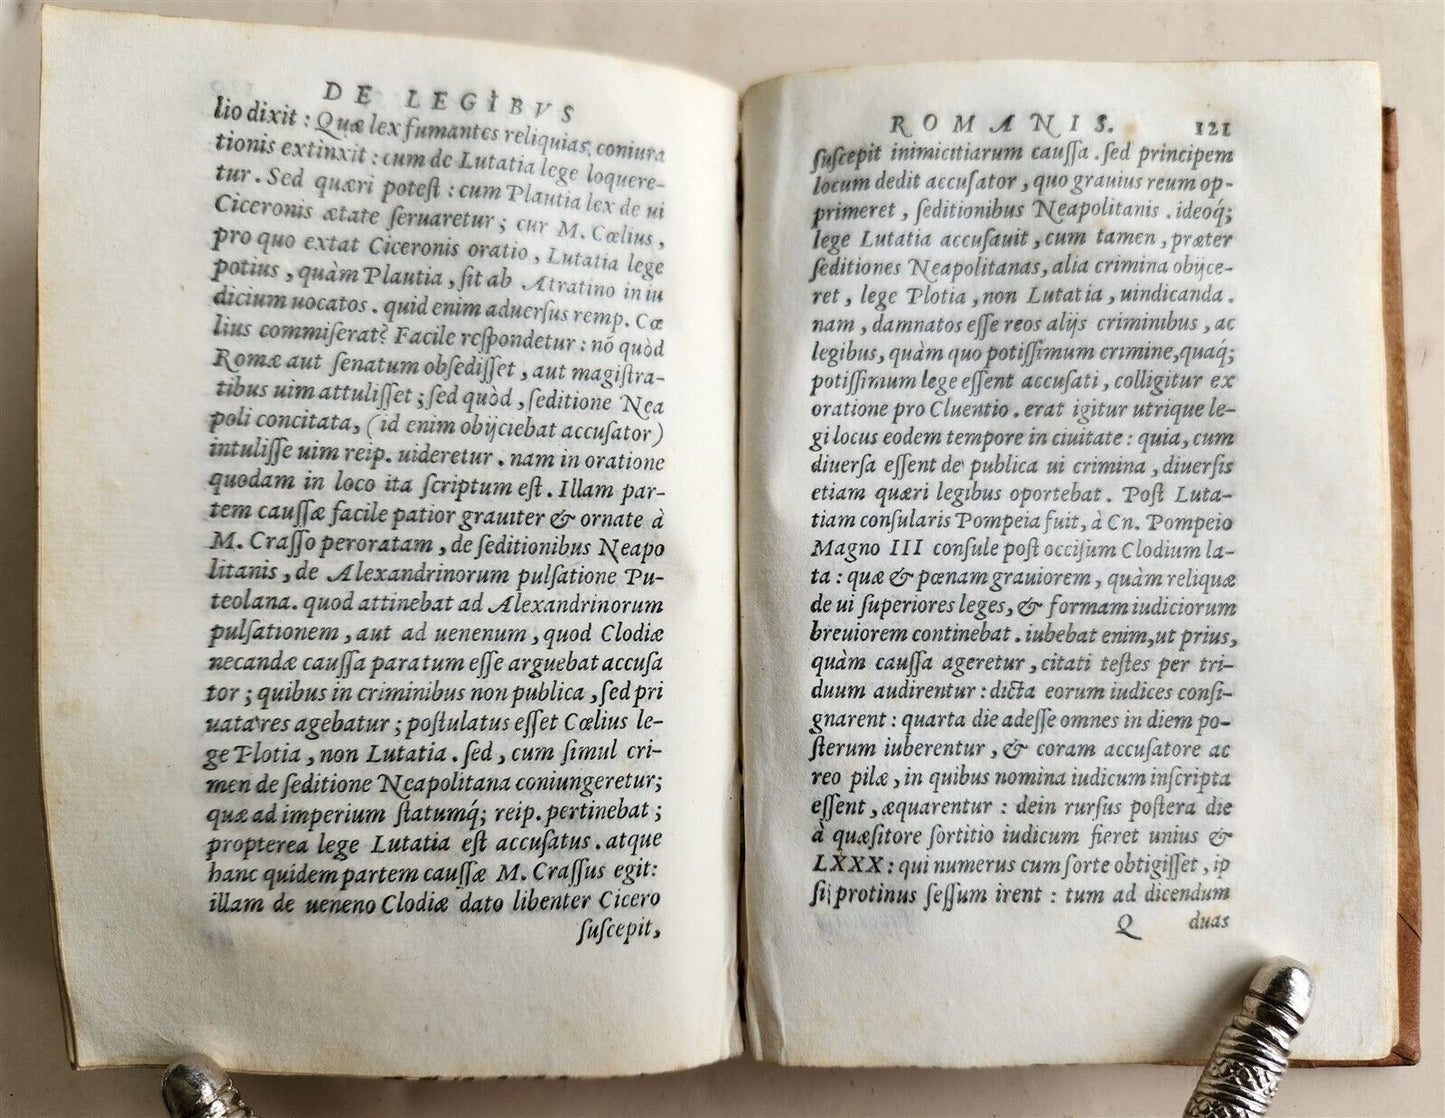 DE LEGIBVS
lio dixit : Quæ lex fumantes reliquias coniura
tionis extinxit : cum de Lutatia lege loquere-
tur . Sed quæri potest : cum Plautia lex de ui
Ciceronis ætate seruaretur ; cur M. Cœlius ,
pro quo extat Ciceronis oratio , Lutatia lege
potius , quàm Plautia , sit ab Atratino in iu
dicium uocatos . quid enim aduersus remp. Cœ
lius commiserat? Facile respondetur : nō quòd
Romæ aut senatum obsedisset , aut magistra-
tibus uim attulisset ; sed quòd , seditione Nea
poli concitata, (id enim obijciebat accusator)
intulisse uim reip. uideretur . nam in oratione
quodam in loco ita scriptum est . Illam par-
tem caussæ facile patior grauiter & ornate à
M. Crasso peroratam , de seditionibus Neapo
litanis , de Alexandrinorum pulsatione Pu-
teolana. quod attinebat ad Alexandrinorum
pulsationem , aut ad uenenum , quod Clodiæ
necandæ caussa paratum esse arguebat accusa
tor ; quibus in criminibus non publica , sed pri
uata res agebatur ; postulatus esset Cœlius le-
ge Plotia , non Lutatia . sed , cum simul cri-
men de seditione Neapolitana coniungeretur;
quæ ad imperium statumq́; reip. pertinebat ;
propterea lege Lutatia est accusatus . atque
hanc quidem partem caussæ M. Crassus egit:
illam de ueneno Clodiæ dato libenter Cicero
suscepit,
ROMANIS. 121
suscepit inimicitiarum caussa . sed principem
locum dedit accusator , quo grauius reum op-
primeret , seditionibus Neapolitanis . ideoq́;
lege Lutatia accusauit , cum tamen , præter
seditiones Neapolitanas, alia crimina obijce-
ret , lege Plotia , non Lutatia , uindicanda .
nam , damnatos esse reos alijs criminibus , ac
legibus, quàm quo potissimum crimine, quaq́;
potissimum lege essent accusati , colligitur ex
oratione pro Cluentio . erat igitur utrique le-
gi locus eodem tempore in ciuitate : quia, cum
diuersa essent de publica ui crimina , diuersis
etiam quæri legibus oportebat . Post Luta-
tiam consularis Pompeia fuit, à Cn. Pompeio
Magno III consule post occisum Clodium la-
ta : quæ & pœnam grauiorem , quàm reliquæ
de ui superiores leges, & formam iudiciorum
breuiorem continebat . iubebat enim, ut prius,
quàm caussa ageretur , citati testes per tri-
duum audirentur : dicta eorum iudices consi-
gnarent : quarta die adesse omnes in diem po-
sterum iuberentur , & coram accusatore ac
reo pilæ , in quibus nomina iudicum inscripta
essent , æquarentur : dein rursus postera die
à quæsitore sortitio iudicum fieret unius &
LXXX : qui numerus cum sorte obtigisset , ip
sij protinus sessum irent : tum ad dicendum
Q duas